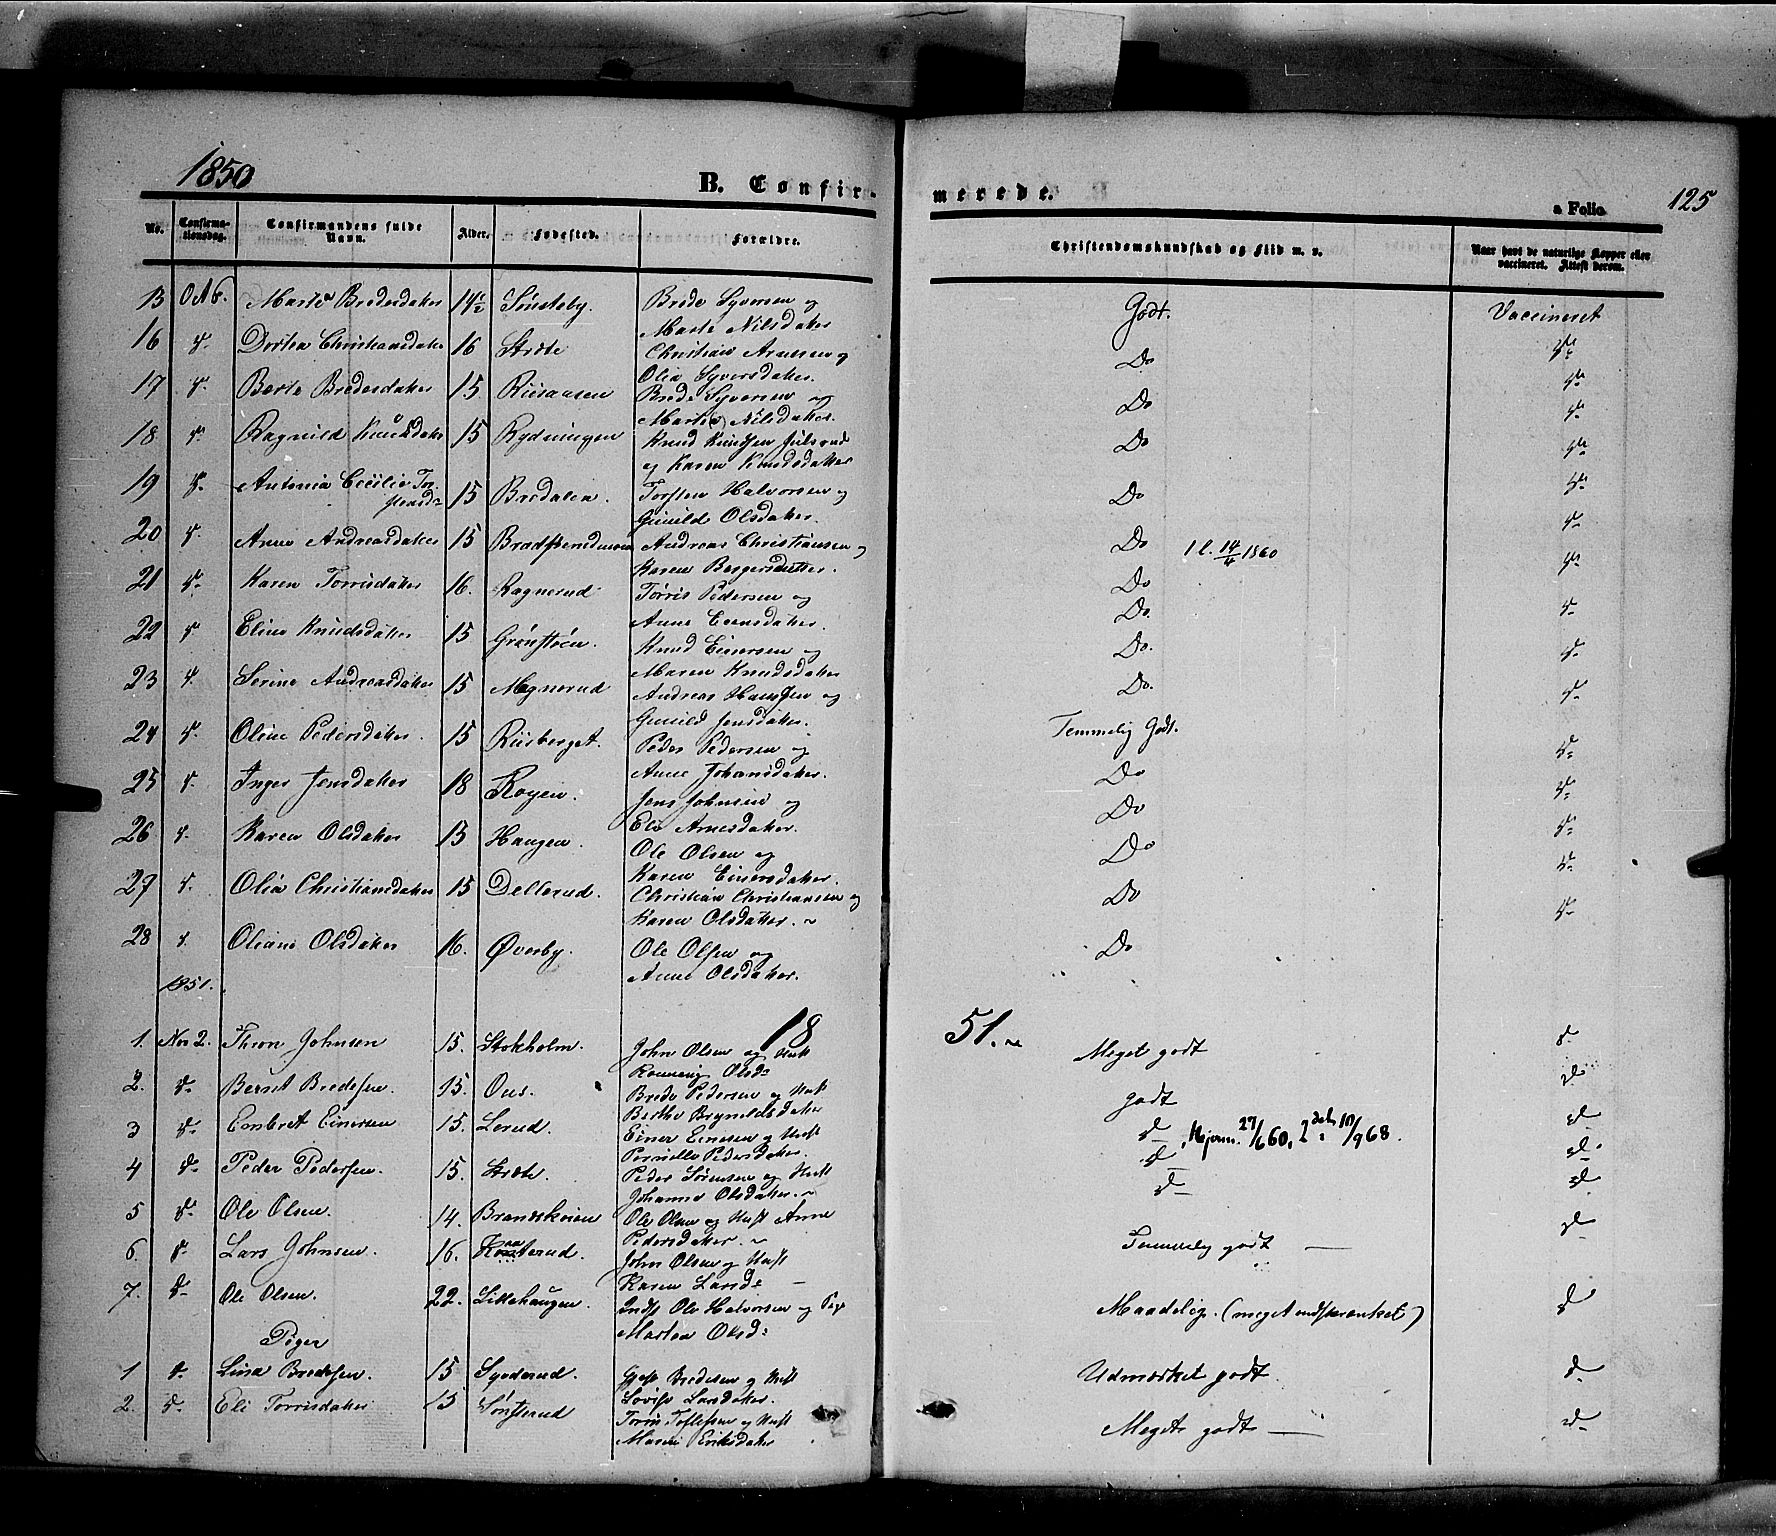 1850
B. Confirmerede.
a Folio 125
No. Confirmationsdag. Confirmandens fulde Navn. Alder. Fødested. Forældre. Christendomskundskab og Flid m. v. Naar havt de naturlige Kopper eller vaccineret. Attest derom.
15 Oct 6. Marte Bredesdatter 14½ Sønsteby. Brede Syversen og Marte Nilsdatter Godt. Vaccineret
16 d- Dorten Christiansdatter 16 Christian Arnesen og Olia Syversdatter. Do do
17 d- Berte Bredesdatter 15 Riisaasen Brede Syversen og Marte Nilsdatter. Do do
18 d- Ragnild Knudsdatter 15 Rydningen Knud Knudsen Julsrud og Karen Knudsdatter Do do
19 d- Antonia Cecilie Torstensd- 15 Bredalen. Torsten Halvorsen og Gunild Olsdatter. Do do
20 d- Anne Andreasdatter 15 Andreas Christiansen og Karen Bergersdatter. Do 1 l. 14/4 1860 d-
21 d- Karen Torrisdatter 16. Ragnerud Torris Pedersen og Anne Evensdatter. Do do
22 d- Eline Knudsdatter 15 Knud Einersen og Maren Knudsdatter Do. d-
23 d. Serine Andreasdatter 15 Mognerud Andreas Hansen og Gunild Jensdatter. Do. d-
24 d- Oline Pedersdatter. 15 Riisberget. Peder Pedersen og Anne Johansdatter. Temmelig Godt. d-
25 d- Inger Jensdatter 18 Røyen. Jens Johnsen og Eli Arnesdatter. Do d-
26 d- Karen Olsdatter 15 Haugen. Ole Olsen og Karen Einersdatter. Do d-
27 d- Olia Christiansdatter 15 Dellerud. Christian Christiansen og Karen Olsdatter. ~ Do d-
28 d. Oliane Olsdatter 16. Øverby. Ole Olsen og Anne Olsdatter. Do d-
1851.
1851. ~
1. Nov 2. Thron Johnsen 15. Stokholm. John Olsen og Hust Ronnaug Olsd: Meget godt d-
2. d- Bernt Bredesen. 15. Ous. Brede Pedersen og Hust Berthe Brynildsdatter godt d-
3 d- Embret Einersen 15. Lerud. Einer Einersen og Hust Pernille Pedersdatter. d- Hjem. 27/6 60, 2den 10/9 68. d-
4 d- Peder Pedersen. 15. Peder Sørensen og Hust Johanne Olsdatter. ~ d- d-
5 d- Ole Olsen. 14. Brandskoien Ole Olsen og Hust Anne Pedersdatter. ~ d- d-
6. d- Lars Johnsen. 16. John Olsen og Hust Karen Larsd: Temmelig godt — d-
7. d- Ole Olsen. 22. Lillehaugen. Indst Ole Halvorsen og Pige Marten Olsd: Maadelig. (meget indskrænket) d
Piger
1 d- Lina Bredesen. 15 Synderud. Bredesen og Hust Lovise Larsdatter. Udmærket godt. d-
2. d- Eli Torrisdatter 15 Sønsterud Torris Toflefsen og Hust Maren Eriksdatter Meget godt — d-